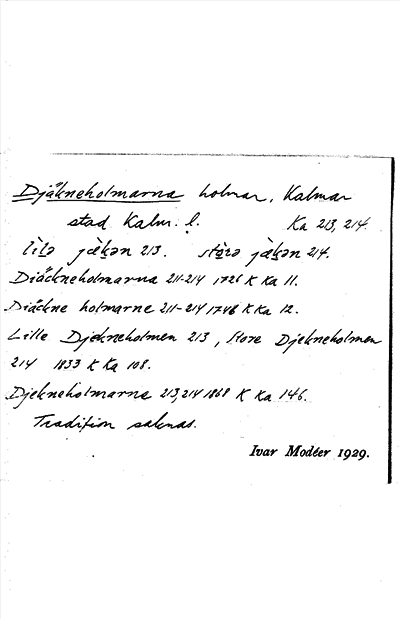 Djäkneholmarna holmar, Kalmar
stad Kalm. l. Ka 213, 214.
lìlə jækən 213. stòrə jækən 214.
Diäckneholmarna 211-214 1726 K Ka 11.
Diäckne holmarne 211-214 1746 K Ka 12.
Lille Djekneholmen 213, Store Djekneholmen
214 1833 K Ka 108.
Djekneholmarne 213, 214 1868 K Ka 146.
Tradition saknas.
Ivar Modéer 1929.